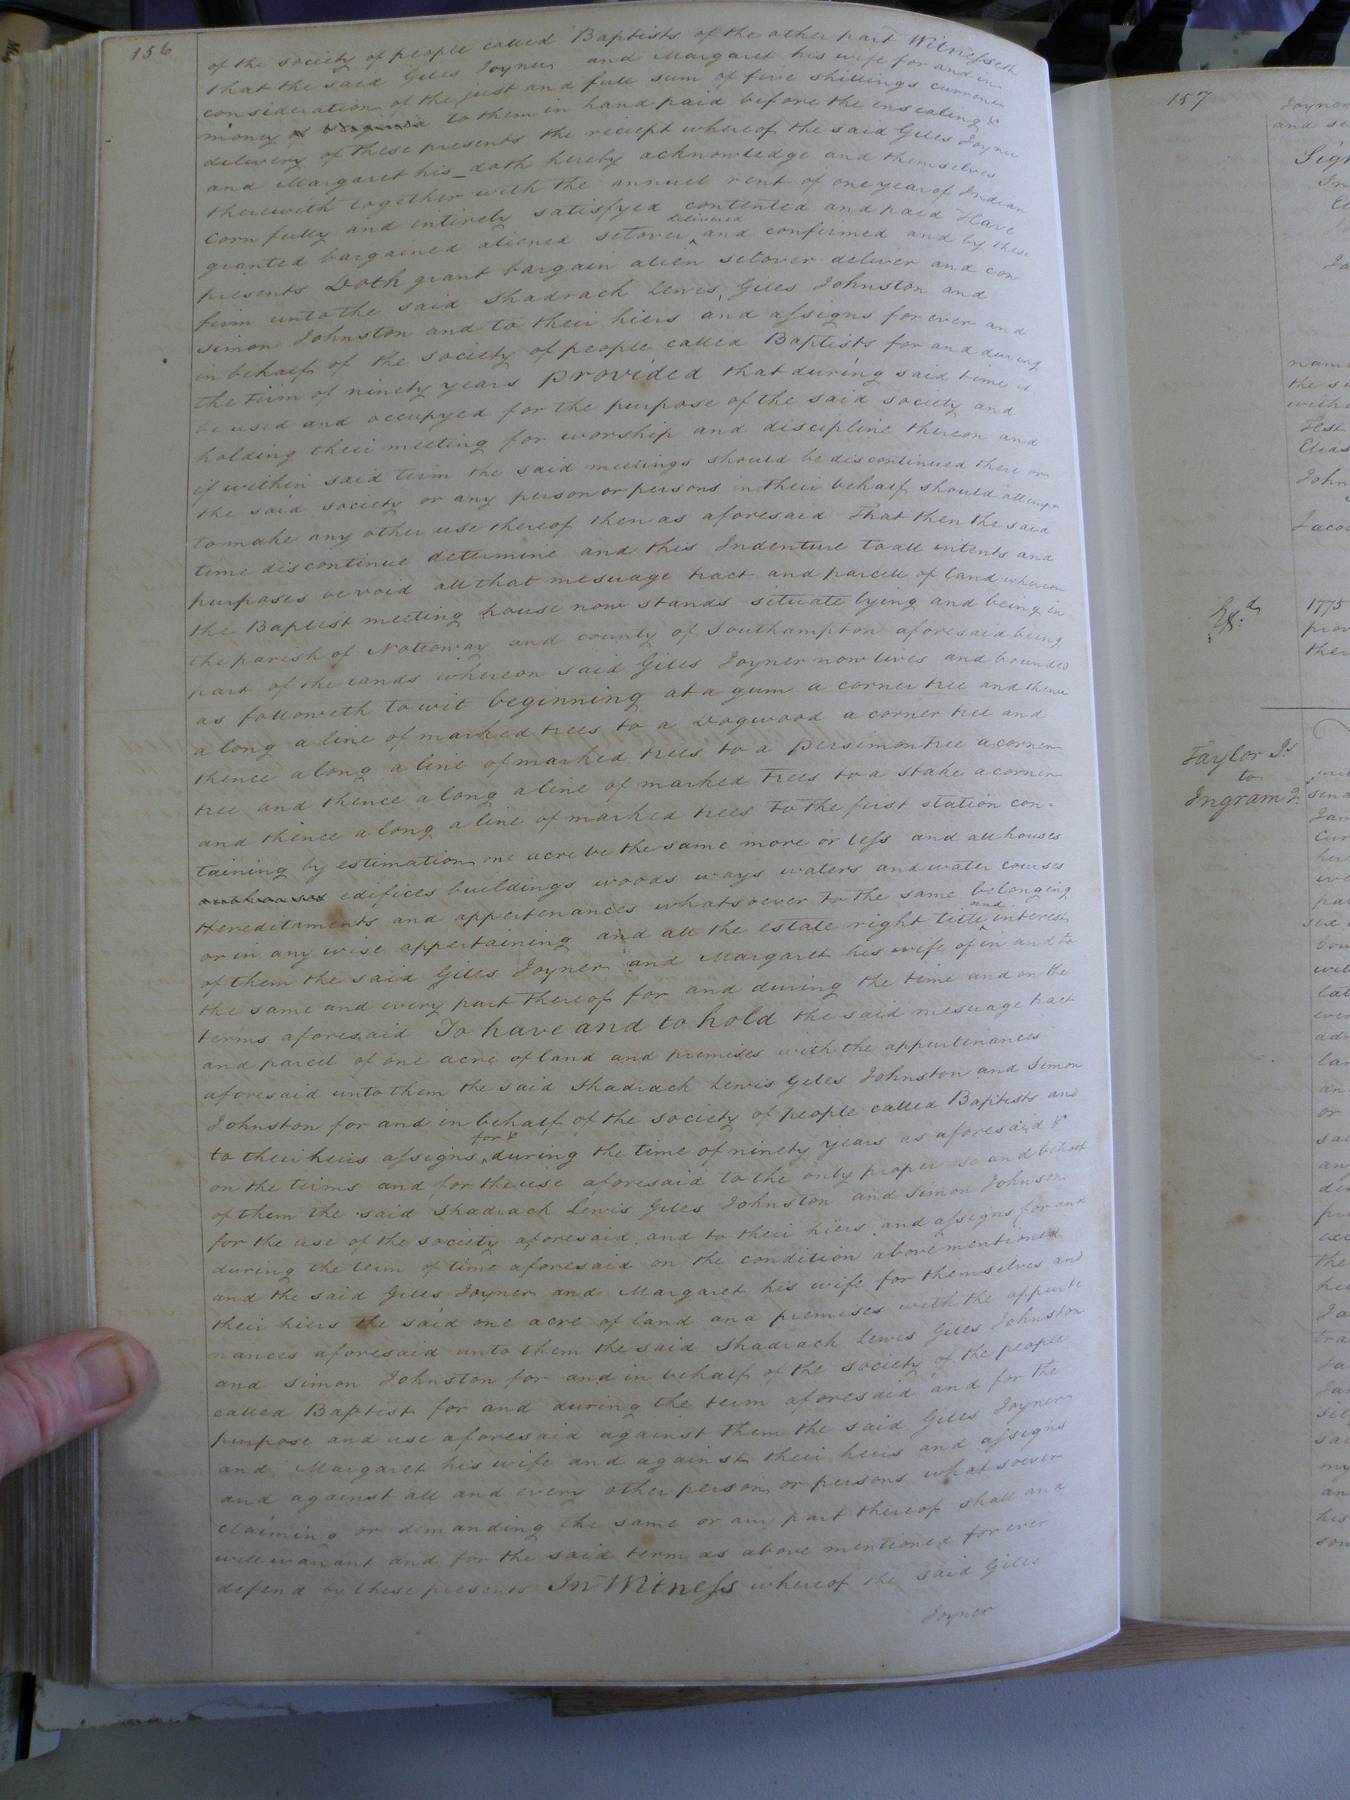 156
of the society of people called Baptists of the other part Witnesseth
that the said Giles Joyner and Margaret his wife for and in
consideration of the just and full sum of five shillings current
money to them in hand paid before the ensealing &
delivery of these presents the reciept whereof the said Giles Joyner
and Margaret his doth hereby acknowledge and themselves
therewith together with the annuel rent of one year of Indian
Corn fully and intirely satisfyed contented and paid Have
granted bargained aliened setover delivered and confirmed and by these
presents Doth grant bargain alien setover deliver and con
firm unto the said Shadrach Lewis, Giles Johnston and
Simon Johnston and to their hiers and assigns for ever and
in behalf of the society of people called Baptists for and during
the term of ninety years provided that during said time is
be used and occupyed for the purpose of the said society and
holding their meeting for worship and discipline thereon and
if within said term the said meetings should be discontinued there or
the said society or any person or persons in their behalf should attempt
to make any other use thereof then as aforesaid That then the said
time discontinue determine and this Indenture to all intents and
purposes be void all that mesuage tract and parcell of land whereon
the Baptist meeting house now stands situate lying and being in
the parish of Nottoway and county of Southampton aforesaid being
part of the lands whereon said Giles Joyner now lives and bounded
as followeth to wit beginning at a gum a corner tree and thence
along a line of marked trees to a Dogwood a corner tree and
thence along a line of marked trees to a persimon tree a corner
tree and thence along a line of marked trees to a stake a corner
and thence along a line of marked trees to the first station con-
taining by estimation one acre be the same more or less and all houses
edifices buildings woods ways waters and water courses
Hereditaments and appertenances whatsoever to the same belonging
or in any wise appertaining and all the estate right title and interest
of them the said Giles Joyner and Margaret his wife of in and to
the same and every part thereof for and during the time and on the
terms aforesaid To have and to hold the said mesuage tract
and parcel of one acre of land and premises with the appurtenances
aforesaid unto them the said Shadrach Lewis Giles Johnston and Simon
Johnston for and in behalf of the society of people called Baptists and
to their heirs assigns for & during the time of ninety years as aforesaid &
on the terms and for the use aforesaid to the only proper use and behoof
of them the said Shadrach Lewis Giles Johnston and Simon Johnson
for the use of the society aforesaid and to their hiers and assigns for and
during the term of time aforesaid on the condition above mentioned
and the said Giles Joyner and Margaret his wife for themselves and
their hiers the said one acre of land and premises with the appurte
nances aforesaid unto them the said Shadrach Lewis Giles Johnston
and Simon Johnston for and in behalf of the society of the people
called Baptist for and during the term aforesaid and for the
purpose and use aforesaid against them the said Giles Joyner
and Margaret his wife and against their heirs and assigns
and against all and every other person or persons whatsoever
claiming or demanding the same or any part thereof shall and
will warrant and for the said term as above mentioned forever
defend by these presents In Witness whereof the said Giles
Joyner
157
Joyner
and se
Sign
In
1775
prov
ther
Taylor Jr.
to
Ingram J.